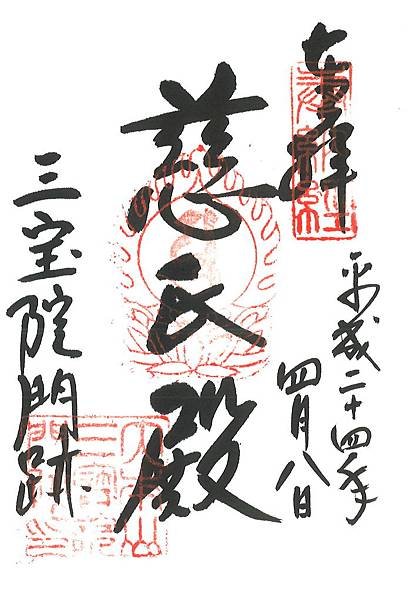 奉拝
平成二十四年
四月八日
慈氏殿
三宝院門跡